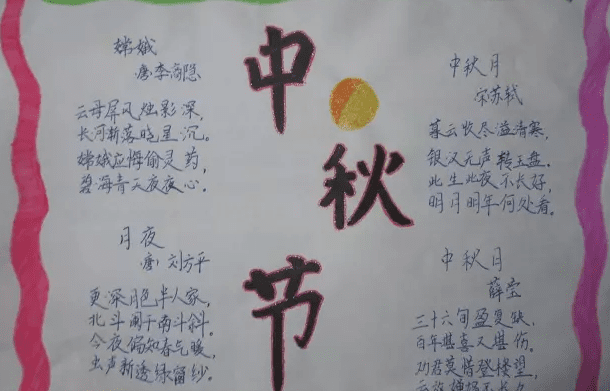 嫦娥
唐李商隐
云母屏风烛影深，
长河渐落晓星沉。
嫦娥应悔偷灵药，
碧海青天夜夜心。
月夜
唐 刘方平
更深月色半人家，
北斗阑干南斗斜。
今夜偏知春气暖，
虫声新透绿窗纱。
中
秋
节
中秋月
宋苏轼
暮云收尽溢清寒，
银汉无声转玉盘。
此生此夜不长好，
明月明年何处看。
中秋月
薛莹
三十六旬盈复缺，
百年堪喜又堪伤。
劝君莫惜登楼望，